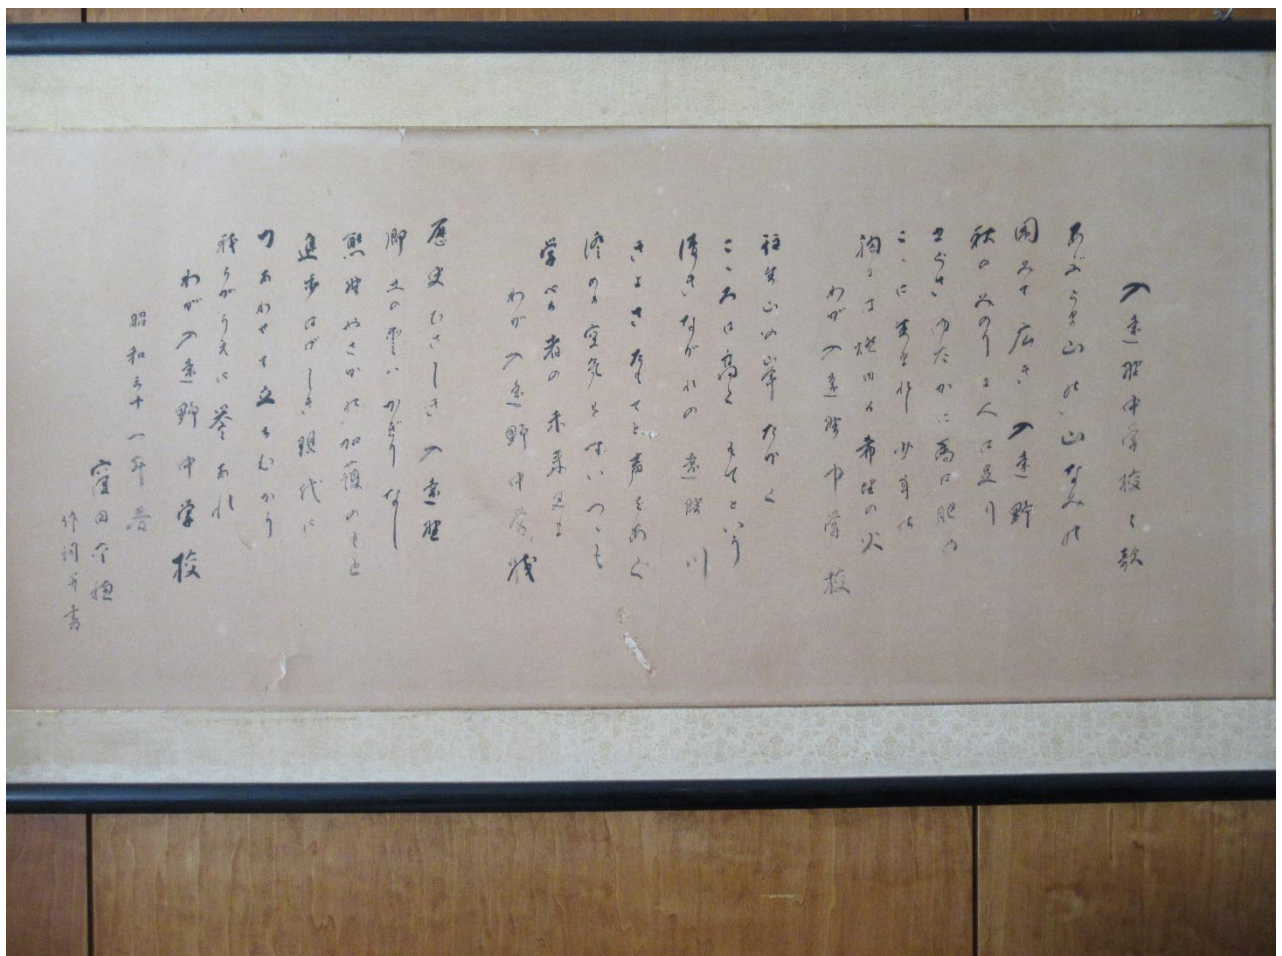 入遠野中学校之歌
あぶくま山の山なみの
囲みて広き入遠野
秋のみのりに人は足り
まぐさゆたかに馬は肥ゆ
ここに生まれし少年の
胸には燃ゆる希望の火
わが入遠野中学校
往生山の峯たかく
こころは高くもてという
清きながれの遠野川
きよさたもてと声をあぐ
学べる者の未来見よ
わが入遠野中学校
歴史ひさしき入遠野
郷土の愛はかぎりなし
熊野やさかの加護のもと
進歩はげしき現代に
力あわせて立ちむかう
我らがうえに誉あれ
わが入遠野中学校
昭和三十一年春
窪田空穂
作詞并書